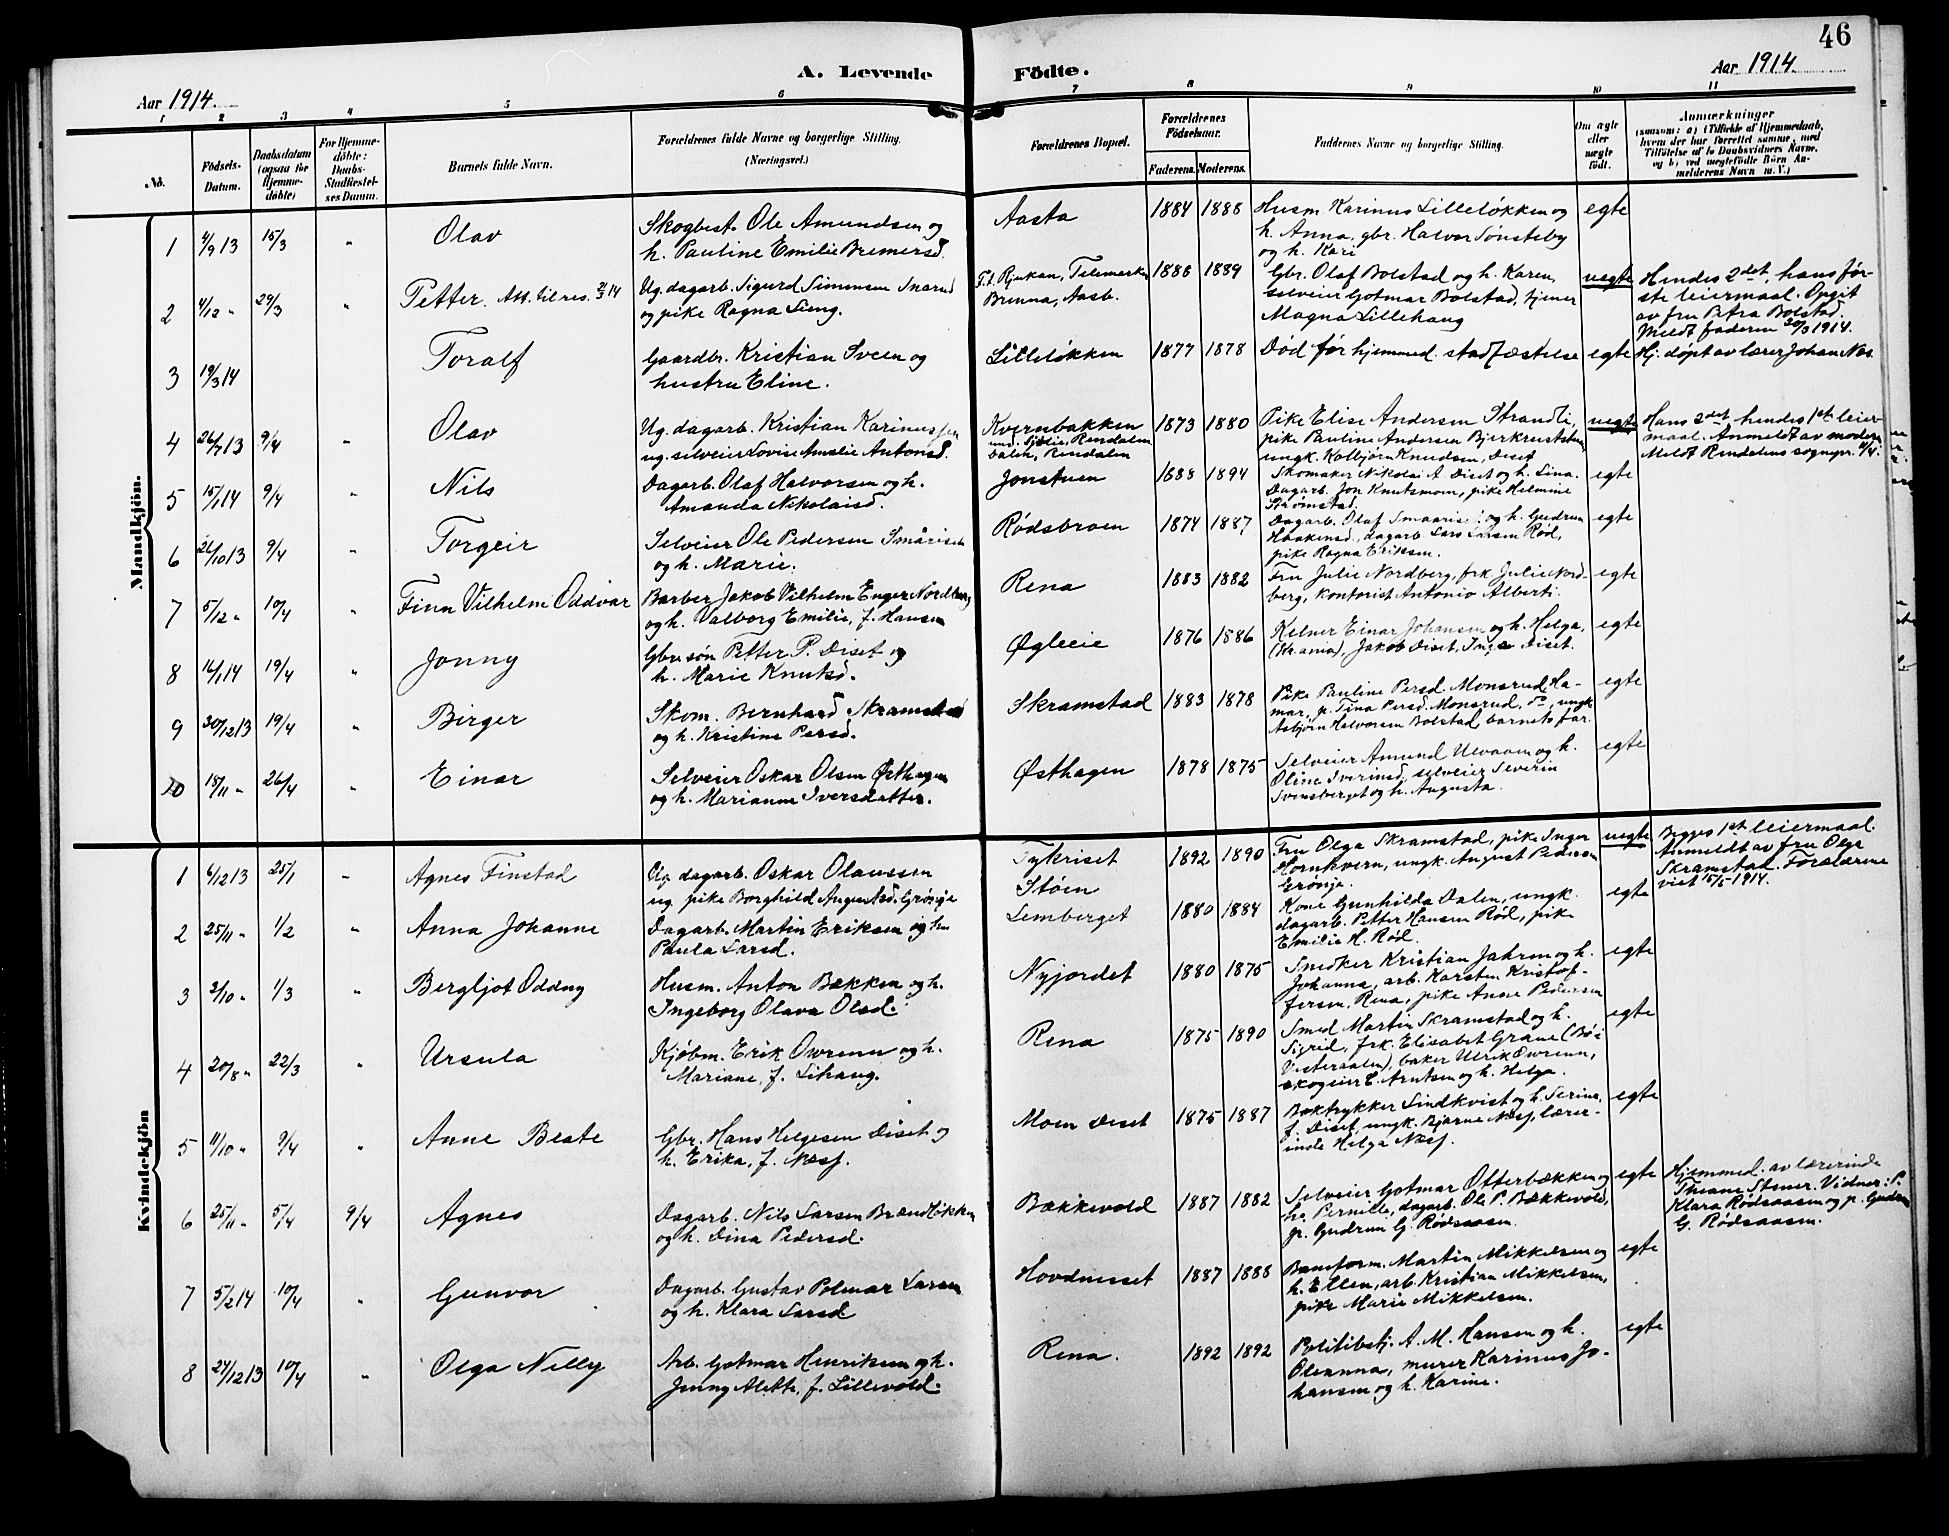 46
A. Levende Födte.
Aar 1914.
Aar 1914.
1 2 3 4 5 6 7 8 9 10 11
No.
Födsels-Datum.
Daabsdatum (ogsaa for Hjemme-döbte)
For Hjemme-döbte: Daabs-Stadfæstel-ses Datum.
Barnets fulde Navn.
Forældrenes fulde Navne og borgerlige Stilling. (Næringsvei.)
Forældrenes Bopæl.
Forældrenes Födselsaar.
Faderens. Moderens.
Faddernes Navne og borgerlige Stilling.
Om ægte eller uægte födt.
Anmærkninger
(saasom: a) i Tilfælde af Hjemmedaab,
hvem der har forrettet samme, med
Tilföielse af to Daabsvidners Navne,
og b) ved uægtefödte Börn An-
melderens Navn m. V.)
Mandkjön.
1 4/9 13 15/3 " Olav
Skogbest. Ole Amundsen og
h. Pauline Emilie Bremersd.
Aasta 1884 1888
Husm. Karinus Lilleløkken og
h. Anna, gbr. Halvor Sønsteby
og h. Kari
egte
2 4/12 " 29/3 " Petter. Att. til res. 21/3 14
Ug. dagarb. Sigurd Simensen
og pike Ragna Lieng.
F. f. Rjukan, Telemarken
Brenna, Aasb.
1888 1889
Gbr. Olaf Bolstad og h. Karen,
selveier Gotmar Bolstad, tjener
Magna Lillehaug
uegte
Hendes 2det, hans før-
ste leiermaal. Opgit
av fru Petra Bolstad.
Meldt faderen 20/3 1914.
3 19/3 14 Toralf
Gaardbr. Kristian Sveen og
hustru Eline.
Lilleløkken 1877 1878
Død før hjemmed. stadfæstelse
egte
Hj. døpt av lærer Johan Næs.
4 26/7 13 9/4 " Olav
Ug. dagarb. Kristian Karinussen
ug. selveier Lovise Amalie Antonsd.
Kvernbakken
und. Sjølie, Rendalen
Rendalen
1873 1880
Pike Elise Andersen Strandli,
pike Pauline Andersen
ungk. Kolbjørn Knudsen, Diset
uegte
Hans 2det, hendes 1ste leier-
maal. Anmeldt av moderen
Meldt Rendalens sognepr. 11/4.
5 15/1 14 9/4 " Nils
Dagarb. Olaf Halvorsen og h.
Amanda Nikolaisd.
Jonstuen 1688 1894
Skomaker Nikolai A. Diset og h. Lina.
Dagarb. Jon Knutsmoen, pike Helmine
Strømstad.
egte
6 26/10 13 9/4 " Torgeir
Selveier Ole Pedersen Smårisen
og h. Marie.
Rødsbraen 1874 1887
Dagarb. Olaf og h. Gudrun
Haakensd., dagarb. Lars Larsen Rød,
pike Ragna Eriksen.
egte
7 5/12 " 10/4 " Finn Vilhelm Oddvar
Barber Jakob Vilhelm Enger Nordberg
og h. Valborg Emilie, f. Hansen
Rena 1883 1882
Fru Julie Nordberg, frk. Julie Nord-
berg, kontorist Antonio Alberti.
egte
8 16/1 14 19/4 " Jonny
Gbr. søn Petter P. Diset og
h. Marie Knutsd.
Øgleeie 1876 1886
Kelner Einar Johansen og h. Helga,
(Krania), Jakob Diset, Inga Diset.
egte
9 30/12 13 19/4 " Birger
Skom. Bernhard Skramstad
og h. Kristine Persd.
Skramstad 1883 1878
Pike Pauline Persd. Monsrud, Ha-
mar, p. Tina Persd. Monsrud, ungk.
Asbjørn Halvorsen Bolstad, barnets far.
egte
10 18/11 " 26/4 " Einar
Selveier Oskar Olsen Østhagen
og h. Marianne Iversdatter.
Østhagen 1878 1875
Selveier Amund Ulvaaen og h.
Oline Iverinsd., selveier Severin
Svensberget og h. Augusta.
egte
Kvindekjön
1 6/12 13 25/1 " Agnes Finstad
Ug. dagarb. Oskar Olaussen
ug. pike Borghild Augustsd. Grønje
Tykriset
Støen
1892 1890
Fru Olga Skramstad, pike Inger
Hornkvern, ungk. August Pedersen
Grønje.
uegte
Begges 1ste leiermaal.
Anmeldt av fru Olga
Skramstad. Forelærene
vist 15/5 1914.
2 25/11 " 1/2 " Anna Johanne
Dagarb. Martin Eriksen og hu
Paula Larsd.
Lemberget 1880 1884
Kone Gunhilda Dalen, ungk.
dagarb. Petter Hansen Rød, pike
Emilie H. Rød.
egte
3 2/10 " 1/3 " Bergljot Oddny
Husm. Anton Bækken og h.
Ingeborg Olava Olsd.
Nyjordet 1880 1875
Snedker Kristian Jahren og h.
Johanna, arb. Karsten Kristof-
fersen, Rena, pike Anne Pedersen
egte
4 20/8 " 22/3 " Ursula
Kjøbm. Erik Owrenn og h.
Mariane, f. Lihaug.
Rena 1875 1890
Smed Martin Skramstad og h.
Sigrid, frk. Elisabet Grane (Bø i
Vesteraalen), baker Ulrik Owrenn,
skogeier E. Arntsen og h. Helga.
egte
5 11/10 " 9/4 " Anne Beate
Gbr. Hans Helgesen Diset og
h. Erika, f. Næsj.
Moen Diset 1875 1887
Boktrykker Lindkvist og h. Serine,
f. Diset, ungk. Bjarne Næsj, lærer-
inde Helga Næsj.
egte
6 25/11 " 5/4 9/4 Agnes
Dagarb. Nils Larsen Brændløkken
og h. Dina Pedersd.
Bækkevold 1887 1882
Selveier Gotmar Otterbækken og
h. Pernille, dagarb. Ole P. Bækkevold,
p. Gudrun G. Rødsaasen.
egte
Hjemmed. av lærerinde
Theane Stener. Vidner: P.
Klara Rødsaasen og p. Gudrun
G. Rødsaasen.
7 5/2 14 10/4 " Gunvor
Dagarb. Gustav Polmar Larsen
og h. Klara Larsd.
Hovdnesset 1887 1888
Baneform. Martin Mikkelsen og
h. Ellen, arb. Kristian Mikkelsen,
pike Marie Mikkelsen.
egte
8 24/12 13 10/4 " Olga Nelly
Arb. Gotmar Henriksen og h.
Jenny Alette, f. Lillevold.
Rena. 1892 1892
Politibetj. A. M. Hansen og h.
Oleanna, murer Karinus Jo-
hansen og h. Karine.
egte